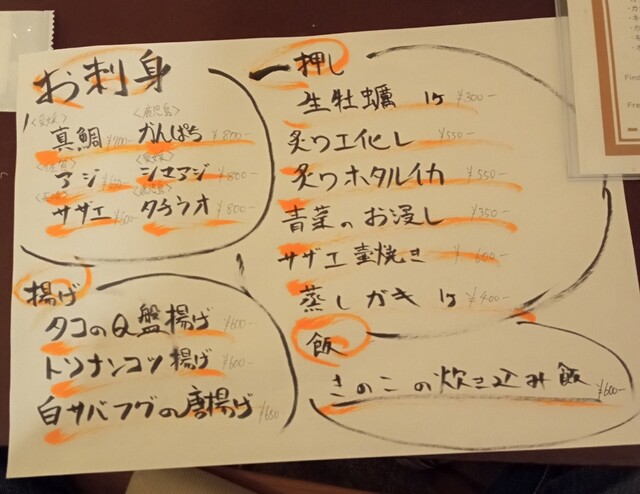 お刺身
<愛媛> <鹿児島>
真鯛 ¥700- かんぱち ¥800-
<愛媛>
アジ ¥600- シマアジ ¥800-
サザエ ¥600- タチウオ ¥800-
揚げ
タコのQ盤揚げ ¥600-
トリナンコツ揚げ ¥600-
白サバフグの唐揚げ ¥650-
一押し
生牡蠣 1ヶ ¥300-
炙りエイヒレ ¥550-
炙りホタルイカ ¥550-
青菜のお浸し ¥350-
サザエ壷焼き ¥600-
蒸しガキ 1ヶ ¥400-
飯
きのこの炊き込み飯 ¥600-